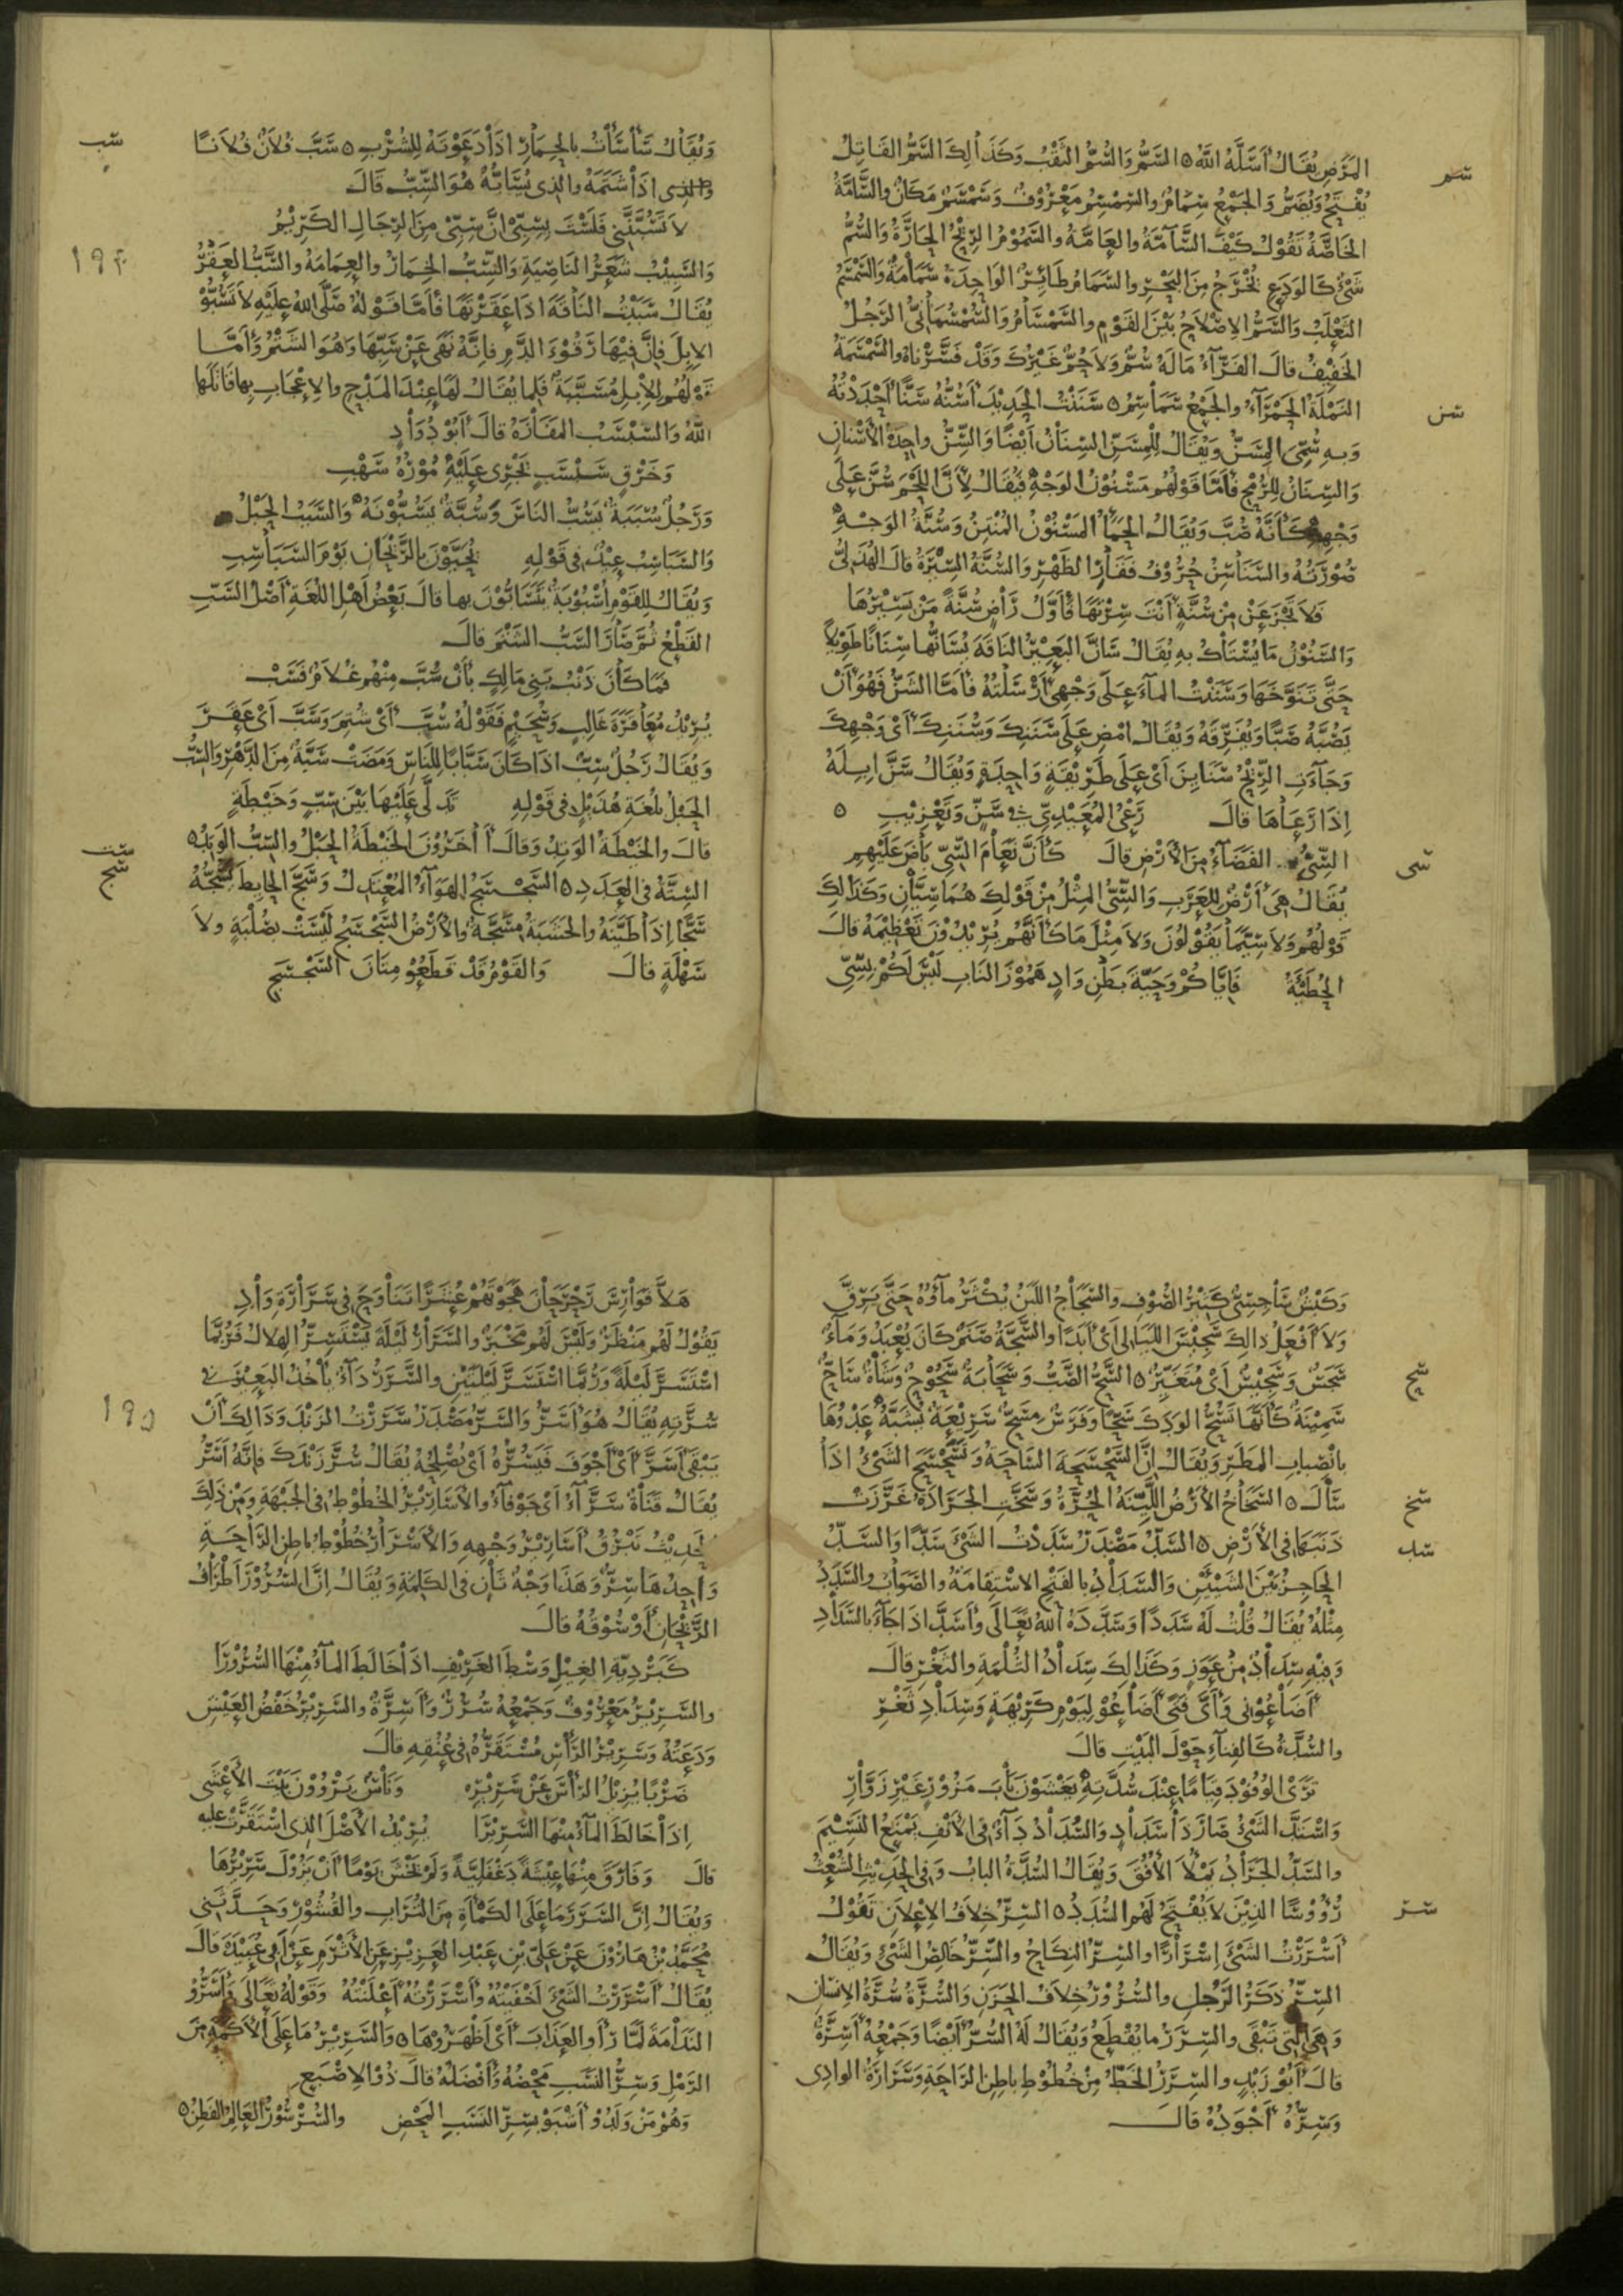 المَرَضِ يُقَالُ أَسَلَّهُ اللهُ ٥ السَّمُّ وَالسُّمُّ الثَّقْبُ وَكَذَالِكَ السَّمُّ القَاتِلُ
سم
يُفْتَحُ وَيُضَمُّ وَالجَمْعُ سِمَامٌ والسِّمْسِمُ مَعْرُوْفٌ وَسَمْسَمٌ مَكَانٌ والسَّامَّةُ
الخَاصَّةُ تَقُوْلُ كَيْفَ السَّآمَّةُ والعَامَّةُ والسَّمُوْمُ الرِّيْحُ الحَارَّةُ وَالسُّمُّ
شَىْءٌ كَالوَدَعِ يُخْرَجُ مِنَ البَحْرِ والسَّمَامُ طَائِرٌ الوَاحِدَةُ سَمَامَةٌ وَالسَّمْسَمُ
الثَّعْلَبُ وَالسَّمُّ الإِصْلَاحُ بَيْنَ القَوْمِ والسَّمْسَامُ وَالسُّمْسُمَانِىُّ الرَّجُلُ
الخَفِيْفُ قالَ الفَرَّآءُ مَا لَهُ سُمٌّ وَلَا حُمٌّ غَيْرُكَ وَقَدْ فَسَّرْنَاهُ والسِّمْسِمَةُ
النَّمْلَةُ الحَمْرَآءُ والجَمْعُ سَمَاسِمُ ٥ سَنَنْتُ الحَدِيْدَ أَسُنُّهُ سَنًّا أَحْدَدْتُهُ
سن
وَبِهِ سُمِّىَ المِسَنُّ وَيُقَالُ لِلْمِسَنِّ السِنَانُ أَيْضًا وَالسِّنُّ واحِدَةُ الأَسْنَانِ
وَالسِّنَانُ لِلرُّمْحِ فَأَمَّا قَوْلُهُم مَسْنُوْنُ الوَجْهِ فَيُقَالُ لِأَنَّ اللَّحْمَ سُنَّ عَلَى
وَجْهِهِ كَأَنَّهُ صُبَّ وَيُقَالُ الحَمَأُ المَسْنُوْنُ المُنْتِنُ وَسُنَّةُ الوَجْهِ
صُوْرَتُهُ والسَّنَاسِنُ حُرُوْفُ فَقَارِ الظَهْرِ وَالسُّنَّةُ السِّيْرَةُ قالَ الهُذَلِىُّ
فَلَا تَجْزَعَنْ مِنْ سُنَّةٍ أَنْتَ سِرْتَهَا فَأَوَّلُ رَاضٍ سُنَّةً مَنْ يَسِيْرُهَا
وَالسَّنُوْنُ مَا يُسْتَاكُ بِهِ يُقَالُ سَانَّ البَعِيْرُ النَاقَةَ يُسَانُّها سِنَانًا طَوِيْلًا
حَتَّى تَنَوَّخَهَا وَسَنَنْتُ المآءَ عَلَى وَجْهِى أَرْسَلْتُهُ فَأَمَّا الشَنُّ فَهُوَ أَنْ
يَصُبَّهُ صَبًّا وَيُفَرِّقَهُ وَيُقَالُ امْضِ عَلَى سَنَنِكَ وَسُنَنِكَ أَىْ وَجْهِكَ
وَجَآءَتِ الرِّيْحُ سَنَايِنَ أَىْ عَلَى طَرِيْقَةٍ وَاحِدَةٍ وَيُقَالُ سَنَّ إِبِلَهُ
إِذَا رَعَاهَا قالَ رَعْىُ المُعَيْدِىِّ فِى سَنٍّ وَتَعْزِيْبِ ٥
السِّىُّ الفَضَآءُ مِنَ الأَرْضِ قالَ كَأَنَّ نَعَامَ السِّىِّ بَاضَ عَلَيْهِمِ
سى
يُقَالُ هِىَ أَرْضٌ لِلعَرَبِ وَالسِّىُّ المِثْلُ مِنْ قَوْلِكَ هُمَا سِيَّانِ وَكَذَلِكَ
قَوْلُهُم وَلَا سِيَّمَا يَقُوْلُوْنَ وَلَا مِثْلَ مَا كَأَنَّهُم يُرِيْدُوْنَ تَعْظِيْمَهُ قالَ
الحُطَيْئَةُ فَإِيَّاكُمْ وَحَيَّةَ بَطْنِ وَادٍ هَمُوْزَ النَابِ لَيْسَ لَكُمْ بِسِىِّ
وَيُقَالُ سَأْسَأْتُ بِالحِمَارِ اذَا دَعَوْتَهُ لِلشُّرْبِ ٥ سَبَّ فُلَانٌ فُلَانًا
سب
اذَا شَتَمَهُ والذِى يُسَابُّهُ هُوَ السِّبُّ قَالَ
لَا تَسُبَّنَّنِى فَلَسْتَ بِسِبِّى انَّ سِبِّى مِنَ الرِّجَالِ الكَرِيْمُ
وَالسَّبِيْبُ شَعَرُ النَاصِيَةِ وَالسِّبُّ الخِمَارُ والعِمَامَةُ والسَّبُّ العَقْرُ
١٩٤
يُقَالُ سَبَبْتُ النَاقَةَ اذَا عَقَرْتَهَا فَأَمَّا قَوْلُهُ صَلَّى اللهُ عَلَيْهِ لَا تَسُبُّوْ
الإِبِلَ فَإِنَّ فِيْهَا رَقُوْءَ الدَّمِ فَإِنَّهُ نَهَى عَنْ سَبِّهَا وَهُوَ الشَتْمُ وَأَمَّا
قَوْلُهُم لِلْإِبِلِ مُسَبَّبَةٌ فَلِما يُقَالُ لَهَا عِنْدَ المَدْحِ والإِعْجَابِ بِها قَاتَلَهَا
اللهُ وَالسَّبْسَبُ المَفَازَةُ قالَ أَبُوْ دُوَادٍ
وَخَرْقٍ سَبْسَبٍ يَجْرِى عَلَيْهِ مُوْرُهُ سَهْبِ
وَرَجُلٌ سُبَبَةٌ يَسُبُّ النَاسَ وَسُبَّةٌ يَسُبُّوْنَهُ وَالسَبَبُ الحَبْلُ
وَالسَّبَاسِبُ عِيْدٌ فِى قَوْلِهِ يُحَيَّوْنَ بِالرَّيْحَانِ يَوْمَ السَّبَاسِبِ
وَيُقَالُ لِلقَوْمِ أُسْبُوْبَةٌ يَتَسَابُّوْنَ بِها قالَ بَعْضُ أَهْلِ اللُغَةِ أَصْلُ السَّبِّ
القَطْعُ ثُمَّ صَارَ السَّبُّ الشَتْمَ قالَ
فَمَا كَانَ ذَنْبُ بَنِى مَالِكٍ بِأَنْ سُبَّ مِنْهُم غُلَامٌ فَسَبْ
يُرِيْدُ مُعَاقَرَةَ غَالِبٍ وَسُحَيْمٍ فَقَوْلُهُ سُبَّ أَىْ شُتِمَ وَسَبَّ أَىْ عَقَرَ
وَيُقَالُ رَجُلٌ سِبٌّ اذَا كَانَ سَبَّابًا لِلنَاسِ وَمَضَتْ سَبَّةٌ مِنَ الدَّهْرِ وَالسِّبُّ
الحَبْلُ بِلُغَةِ هُذَيْلٍ فِى قَوْلِهِ تَدَلَّى عَلَيْهَا بَيْنَ سِبٍّ وَخَيْطَةٍ
قالَ والخَيْطَةُ الوَتِدُ وَقالَ آخَرُوْنَ الخَيْطَةُ الحَبْلُ والسِّبُّ الوَتِدُ ٥
ست
السِتَّةُ فِى العَدَدِ ٥ السَّجْسَجُ الهَوَآءُ المُعْتَدِلُ وَسَجَّ الحَايِطَ يَسُجُّهُ
سج
سَجًّا إِذَا طَيَّنَهُ والخَشَبَةُ مِسَجَّةٌ والأَرْضُ السَّجْسَجُ لَيْسَتْ بِصُلْبَةٍ وَلَا
سَهْلَةٍ قالَ وَالقَوْمُ قَدْ قَطَعُوْ مِتَانَ السَّجْسَجِ
وَكَبْشٌ سَاجِسِىٌّ كَثِيْرُ الصُّوْفِ والسَّجَاجُ اللَبَنُ يُكْثَرُ مآؤُهُ حَتَّى يَرِقَّ
وَلَا أَفْعَلُ ذالِكَ سَجِيْسَ اللَّيَالِى أَىْ أَبَدًا والسَّجَّةُ صَنَمٌ كَانَ يُعْبَدُ وَمآءٌ
سَجَسٌ وَسَجِيْسٌ أَىْ مُتَغَيِّرٌ ٥ السَّحُّ الصَّبُّ وَسَحَابَةٌ سَحُوْحٌ وَشَاةٌ سَاحٌّ
سح
سَمِيْنَةٌ كَأَنَّهَا تَسُحُّ الوَدَكَ سَحًّا وَفَرَسٌ مِسَحٌّ سَرِيْعَةٌ يُشَبَّهُ عَدْوُهَا
بِانْصِبَابِ المَطَرِ وَيُقَالُ إِنَّ السَّحْسَحَةَ السَّاحَةُ وَتَسَحْسَحَ الشَىْءُ اذَا
سَالَ ٥ السَّخَاخُ الأَرْضُ اللَّيِّنَةُ الحُرَّةُ وَسَخَّتِ الجَرَادَةُ غَرَزَتْ
سخ
ذَنَبَهَا فِى الأَرْضِ ٥ السَّدُّ مَصْدَرُ سَدَدْتُ الشَىْءَ سَدًّا وَالسَّدُّ
سد
الحَاجِزُ بَيْنَ الشَيْئَيْنِ وَالسَّدَادُ بِالفَتْحِ الاسْتِقَامَةُ والصَّوَابُ والسَّدَدُ
مِثْلُهُ يُقَالُ قُلْتُ لَهُ سَدَدًا وَسَدَّدَهُ اللهُ تَعَالَى وَأَسَدَّ اذَا جَآءَ بِالسَّدَادِ
وَفِيْهِ سِدَادٌ مِنْ عَوَزٍ وَكَذَالِكَ سِدَادُ الثُّلْمَةِ والثَّغْرِ قالَ
أَضَاعُوْنِى وَأَىَّ فَتًى أَضَاعُوْ لِيَوْمِ كَرِيْهَةٍ وَسِدَادِ ثَغْرِ
والسُّدَّةُ كَالفِنَآءِ حَوْلَ البَيْتِ قالَ
تَرَى الوُفُوْدَ قِيَامًا عِنْدَ سُدَّتِهِ يَغْشَوْنَ بَابَ مَزُوْرٍ غَيْرِ زَوَّارِ
وَاسْتَدَّ الشَىْءُ صَارَ ذَا سَدَادٍ وَالسُّدَادُ دَآءٌ فِى الأَنْفِ يَمْنَعُ النَسِيْمَ
والسَّدُّ الجَرَادُ يَمْلَأُ الأُفُقَ وَيُقَالُ السُّدَّةُ البابُ وَفِى الحَدِيْثِ الشُعْثُ
رُؤُوْسًا الذِيْنَ لَا يُفْتَحُ لَهُم السُّدَدُ ٥ السِرُّ خِلَافُ الإِعْلَانِ تَقُوْلُ
سر
أَسْرَرْتُ الشَىْءَ إِسْرَارًا والسِرُّ النِكَاحُ والسِّرُّ خَالِصُ الشَىْءِ وَيُقَالُ
السِرُّ ذَكَرُ الرَّجُلِ والسُّرُوْرُ خِلَافُ الحَزَنِ وَالسُّرَّةُ سُرَّةُ الإِنسَانِ
وَهِىَ الَّتِى تَبْقَى والسِرَرُ ما يُقْطَعُ وَيُقَالُ لَهُ السُّرُّ أَيْضًا وَجَمْعُهُ أَسِرَّةٌ
قالَ أَبُوْ زَيْدٍ والسِرَرُ الخَطُّ مِنْ خُطُوْطِ بَاطِنِ الرَّاحَةِ وَسَرَارَةُ الوَادِى
وَسِرُّهُ أَجْوَدُهُ قالَ
هَلَّا فَوَارِسَ رَحْرَحَانَ هَجَوْتَهُمْ عُشَرًا تَنَاوَحَ فِى سَرَارَةِ وَادِ
يَقُوْلُ لَهُم مَنْظَرٌ وَلَيْسَ لَهُم مَخْبَرٌ والسَّرَارُ لَيْلَةَ يَسْتَسِرُّ الهِلَالُ فَرُبَّمَا
اسْتَسَرَّ لَيْلَةً وَرُبَّمَا اسْتَسَرَّ لَيْلَتَيْنِ والسَّرَرُ دَآءٌ يَأْخُذُ البَعِيْرَ فِى
سُرَّتِهِ يُقَالُ هُوَ أَسَرُّ وَالسَّرُّ مَصْدَرُ سَرَرْتُ الزَنْدَ وَذَالِكَ أَنْ
١٩٥
يَبْقَى أَسَرَّ أَىْ أَجْوَفَ فَيَسُرُّهُ أَىْ يُصْلِحُهُ يُقَالُ سُرَّ زَنْدَكَ فَإِنَّهُ أَسَرُّ
يُقَالُ قَنَاةٌ سَرَّآءُ أَىْ جَوْفَآءُ والأَسَارِيْرُ الخُطُوْطُ فِى الجَبْهَةِ وَمِنْ ذَلِكَ
الحَدِيْثُ تَبْرُقُ أَسَارِيْرُ وَجْهِهِ وَالأَسْرَارُ خُطُوْطُ بَاطِنِ الرَّاحَةِ
وَاحِدُهَا سِرٌّ وَهَذَا وَجْهٌ ثَانٍ فِى الكَلِمَةِ وَيُقَالُ إِنَّ السُّرُوْرَ أَطْرَافُ
الرَّيْحَانِ أَوْ سُوْقُهُ قالَ
كَبَرْدِيَّةِ الغِيْلِ وَسْطَ الغَرِيْفِ اذَا خَالَطَ المآءُ مِنْهَا السُّرُوْرَا
والسَّرِيْرُ مَعْرُوْفٌ وَجَمْعُهُ سُرُرٌ وَأَسِرَّةٌ والسَّرِيْرُ خَفْضُ العَيْشِ
وَدَعَتُهُ وَسَرِيْرُ الرَّأْسِ مُسْتَقَرُّهُ فِى عُنُقِهِ قالَ
ضَرْبًا يُزِيْلُ الرَّأْسَ عَنْ سَرِيْرِهِ وَنَاسٌ يَرْوُوْنَ بَيْتَ الأَعْشَى
إِذَا خَالَطَ المآءُ مِنْهَا السَّرِيْرَا يُرِيْدُ الأَصْلَ الذِى اسْتَقَرَّتْ عليه
قالَ وَفَارَقَ مِنْهَا عِيْشَةً دَغْفَلِيَّةً وَلَمْ تَخْشَ يَوْمًا أَنْ يَزُوْلَ سَرِيْرُهَا
وَيُقَالُ إِنَّ السَّرَرَ مَا عَلَى الكَمْأَةِ مِنَ التُرَابِ والقُشُوْرِ وَحَدَّثَنِى
مُحَمَّدُ بْنُ هَارُوْنَ عَنْ عَلِىِّ بْنِ عَبْدِ العَزِيْزِ عَنِ الأَثْرَمِ عَنْ أَبِى عُبَيْدَةَ قالَ
يُقَالُ أَسْرَرْتُ الشَىْءَ أَخْفَيْتُهُ وَأَسْرَرْتُهُ أَعْلَنْتُهُ وَقَوْلُهُ تَعَالَى وَأَسَرُّوْ
النَدَامَةَ لَمَّا رَأَوُ العَذَابَ أَىْ أَظْهَرُوْهَا ٥ وَالسَّرِيْرُ مَا عَلَى الأَكَمَةِ مِنَ
الرَّمْلِ وَسِرُّ النَسَبِ مَحْضُهُ وَأَفْضَلُهُ قالَ ذُوْ الإِصْبَعِ
وَهُوْ مَنْ وَلَدُوْ أَشْبَوْ بِسِرِّ النَسَبِ المَحْضِ والسُّرْسُوْرُ العَالِمُ الفَطِنُ ٥